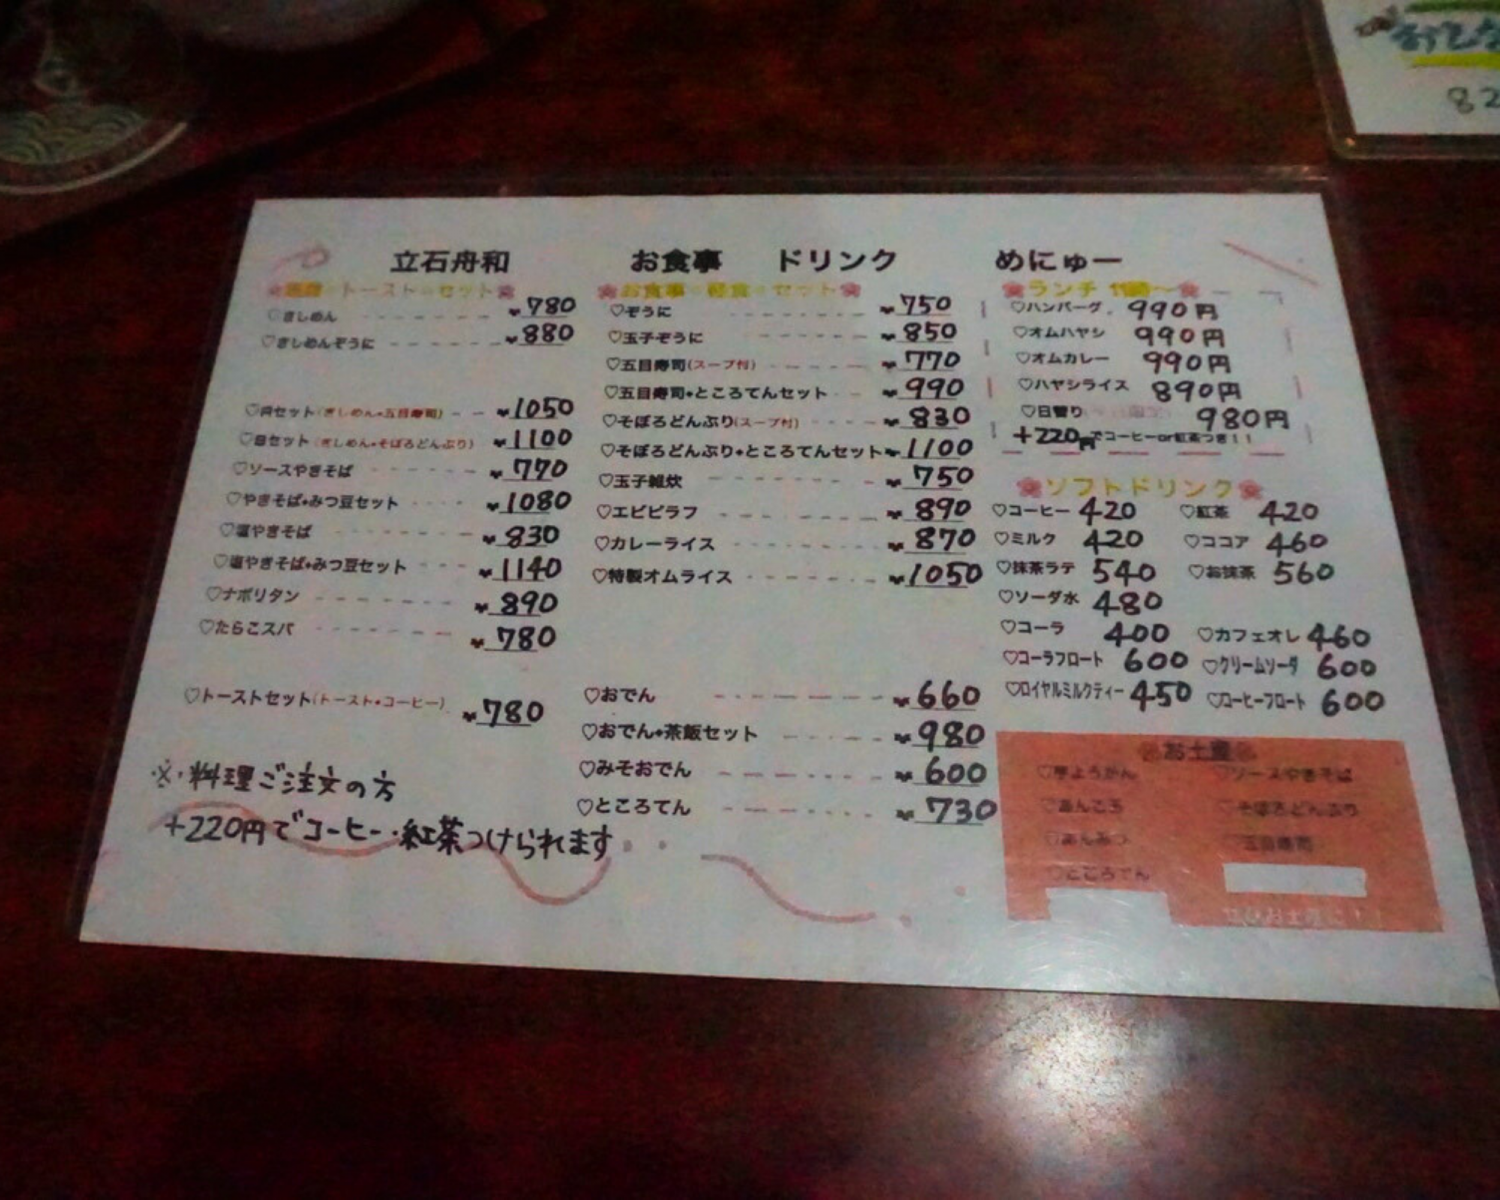 立石舟和 お食事 ドリンク めにゅー
麺類☆トースト☆セット
♡きしめん ¥780
♡きしめんぞうに ¥880
セット(きしめん+五目寿司) ¥1050
セット(きしめん+そぼろどんぶり) ¥1100
♡ソースやきそば ¥770
♡やきそば+みつ豆セット ¥1080
♡塩やきそば ¥830
♡塩やきそば+みつ豆セット ¥1140
♡ナポリタン ¥890
♡たらこスパ ¥780
♡トーストセット(トースト・コーヒー) ¥780
※・料理ご注文の方
+220円でコーヒー・紅茶つけられます
お食事☆軽食☆セット
♡ぞうに ¥750
♡玉子ぞうに ¥850
♡五目寿司(スープ付) ¥770
♡五目寿司+ところてんセット ¥990
♡そぼろどんぶり(スープ付) ¥830
♡そぼろどんぶり+ところてんセット ¥1100
♡玉子雑炊 ¥750
♡エビピラフ ¥890
♡カレーライス ¥870
♡特製オムライス ¥1050
♡おでん ¥660
♡おでん+茶飯セット ¥980
♡みそおでん ¥600
♡ところてん ¥730
ランチ 11時〜
♡ハンバーグ 990円
♡オムハヤシ 990円
♡オムカレー 990円
♡ハヤシライス 890円
♡日替り 980円
+220円でコーヒーor紅茶つき!!
ソフトドリンク
♡コーヒー 420 ♡紅茶 420
♡ミルク 420 ♡ココア 460
♡抹茶ラテ 540 ♡お抹茶 560
♡ソーダ水 480
♡コーラ 400 ♡カフェオレ 460
♡コーラフロート 600 ♡クリームソーダ 600
♡ロイヤルミルクティー 450 ♡コーヒーフロート 600
お土産
♡芋ようかん ♡ソースやきそば
♡あんこ玉 ♡そぼろどんぶり
♡あんみつ ♡五目寿司
♡ところてん
82